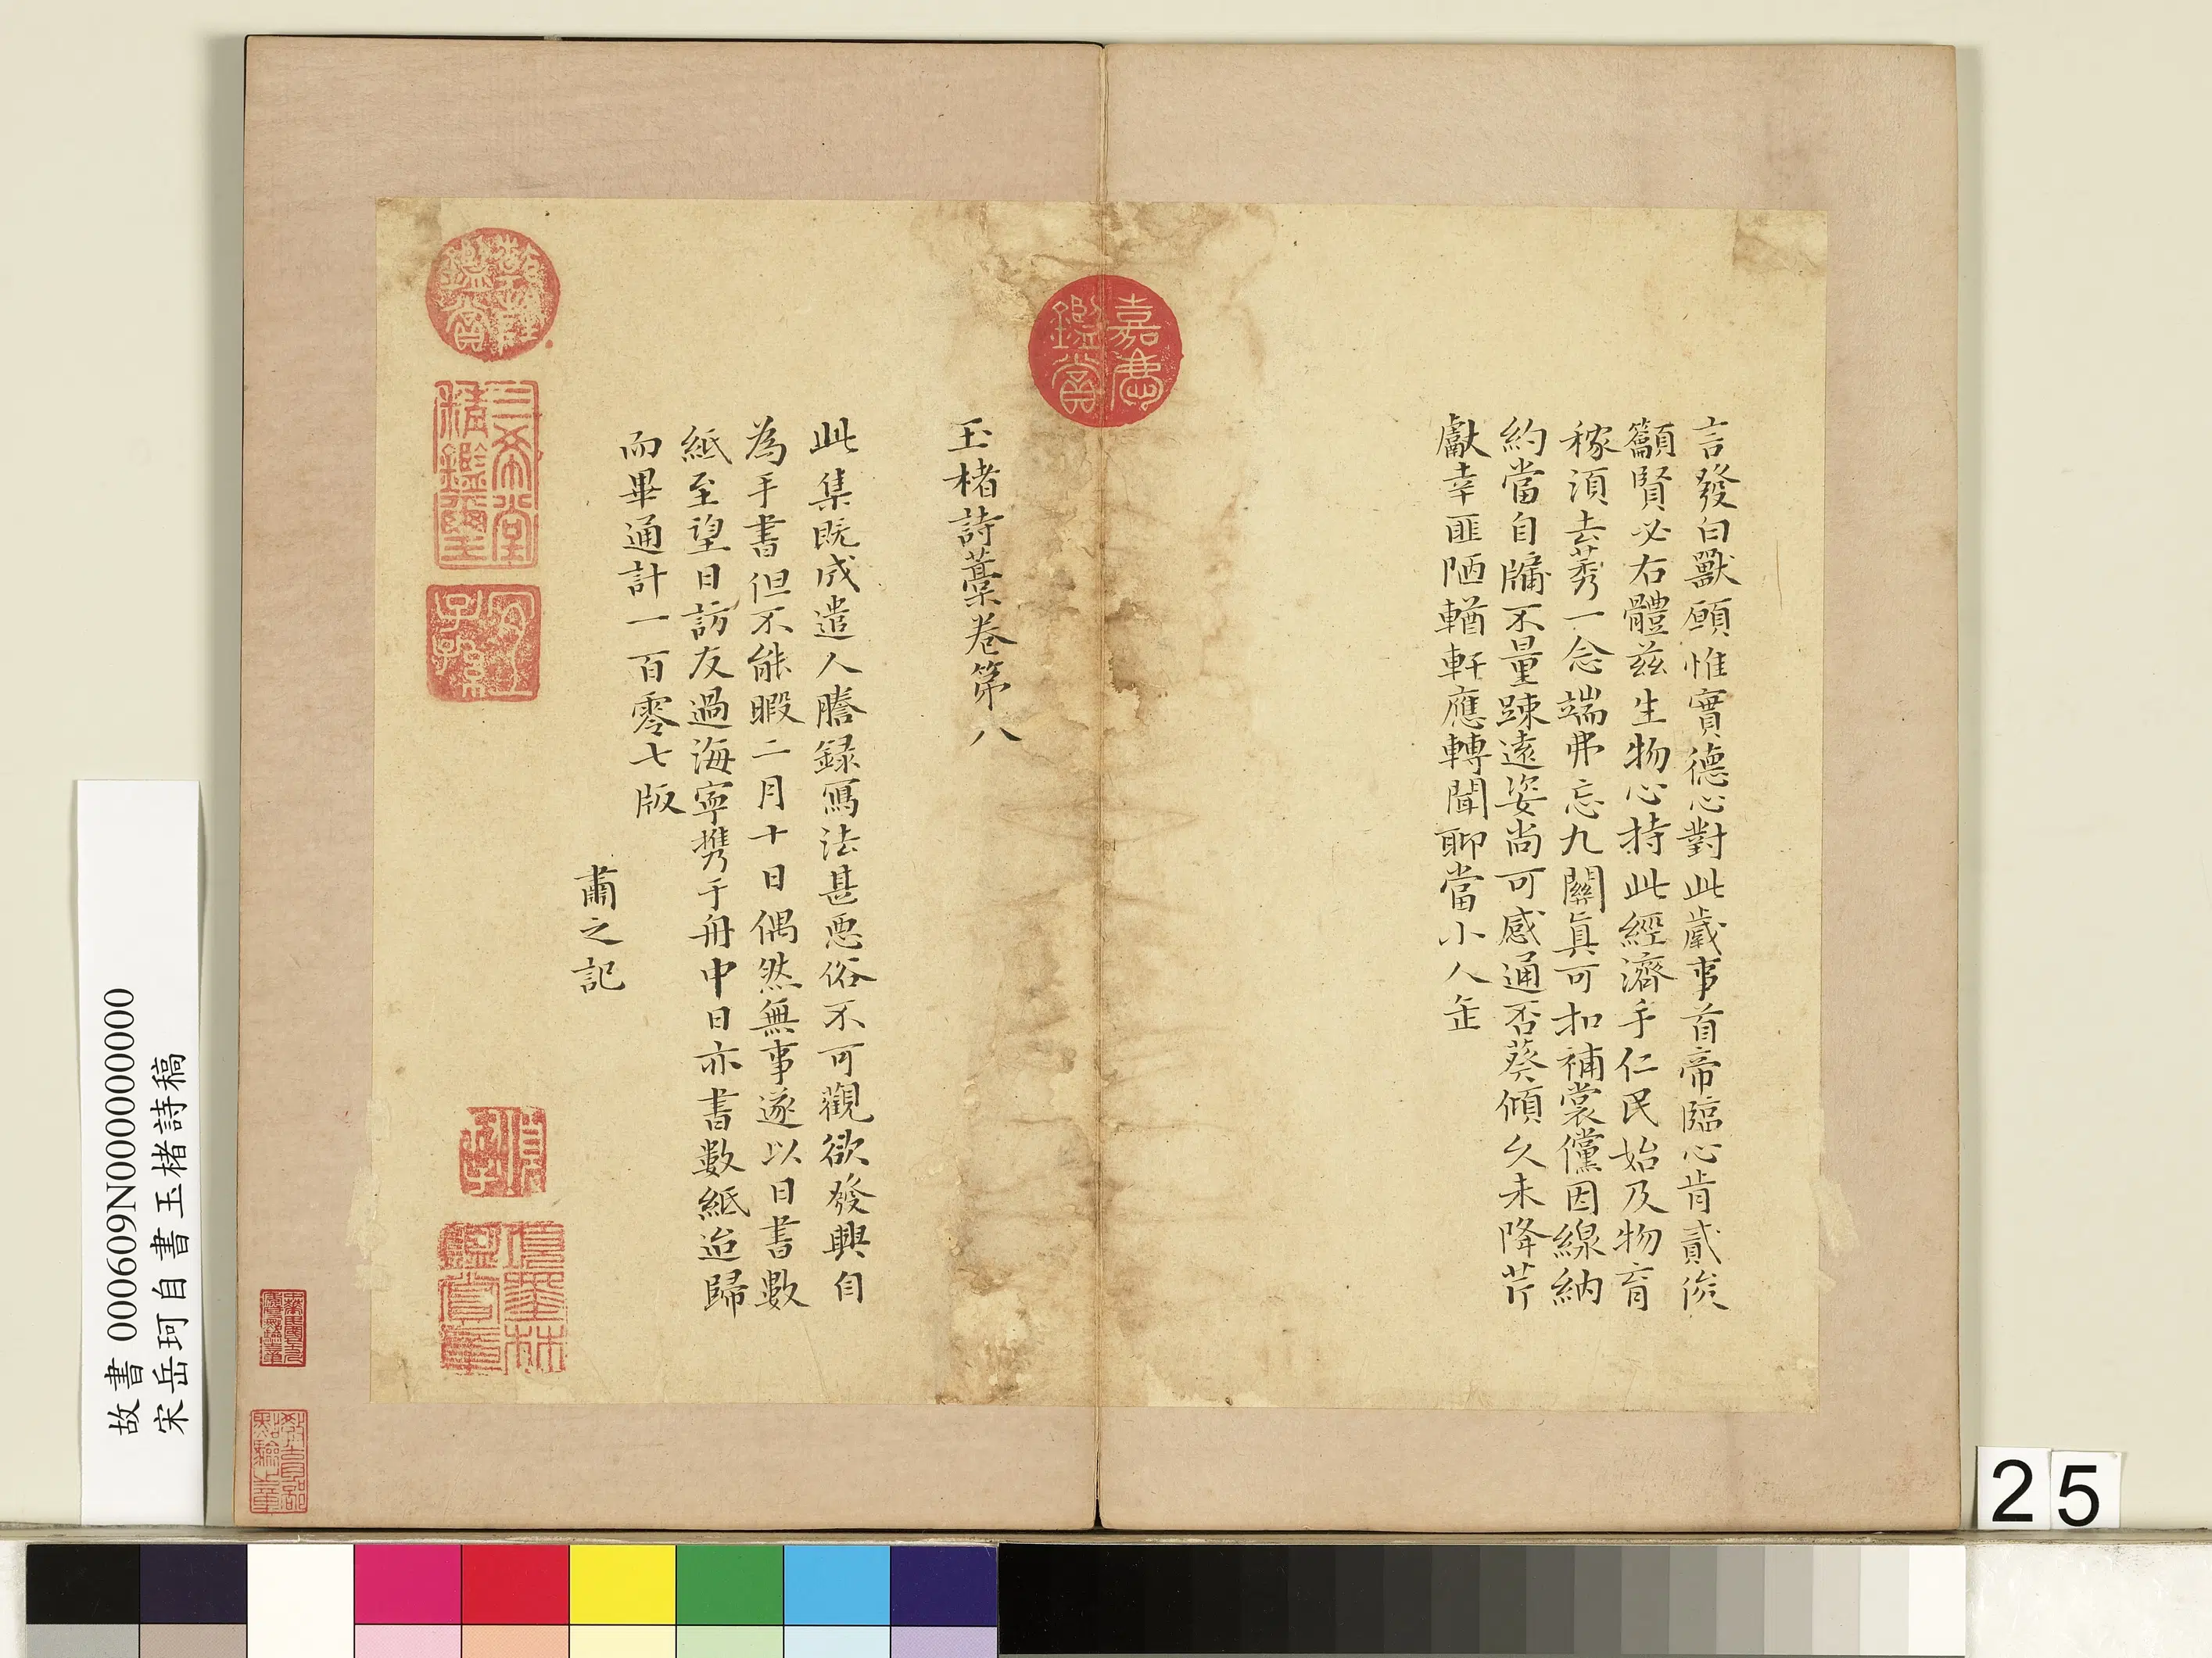 言發白獸願惟實德心對此歲事首帝臨心肯貳俟
籲賢必右體茲生物心持此經濟手仁民始及物育
稼須去莠一念端弗忘九關真可扣補裳儻因線納
約當自牖不量踈遠姿尚可感通否葵傾久未降芹
獻幸匪陋輶軒應轉聞聊當小人缶
玉楮詩藁卷第八
此集既成遣人謄録寫法甚惡俗不可觀欲發興自
為手書但不能暇二月十日偶然無事遂以日書數
紙至望日訪友過海寧攜于舟中日亦書數紙迨歸
而畢通計一百零七版
肅之記
嘉慶鑑賞
乾隆鑑賞
三希堂精鑑璽
宜子孫
項墨林鑑賞章
故書 000609N000000000
宋岳珂自書玉楮詩稿
25